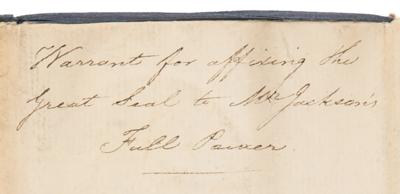 Warrant for affixing the
Great Seal to Mr Jackson's
Full Power.